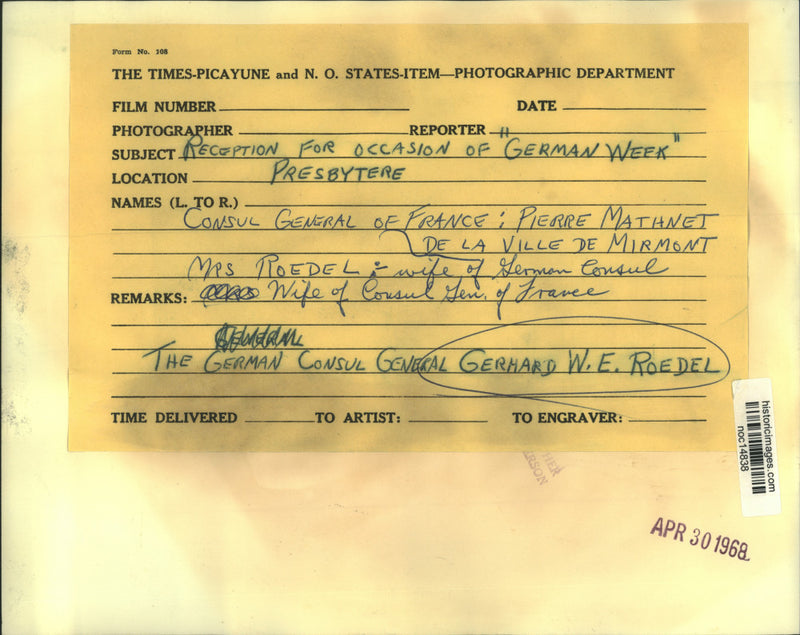 Form No. 108
THE TIMES-PICAYUNE and N. O. STATES-ITEM—PHOTOGRAPHIC DEPARTMENT
FILM NUMBER DATE
PHOTOGRAPHER REPORTER
SUBJECT RECEPTION FOR OCCASION OF "GERMAN WEEK"
LOCATION PRESBYTERE
NAMES (L. TO R.)
CONSUL GENERAL OF FRANCE: PIERRE MATHNET
DE LA VILLE DE MIRMONT
MRS ROEDEL:- wife of German Consul
REMARKS: Wife of Consul Gen. of France
THE GERMAN CONSUL GENERAL GERHARD W. E. ROEDEL
TIME DELIVERED TO ARTIST: TO ENGRAVER:
historicimages.com
noc14838
APR 30 1968